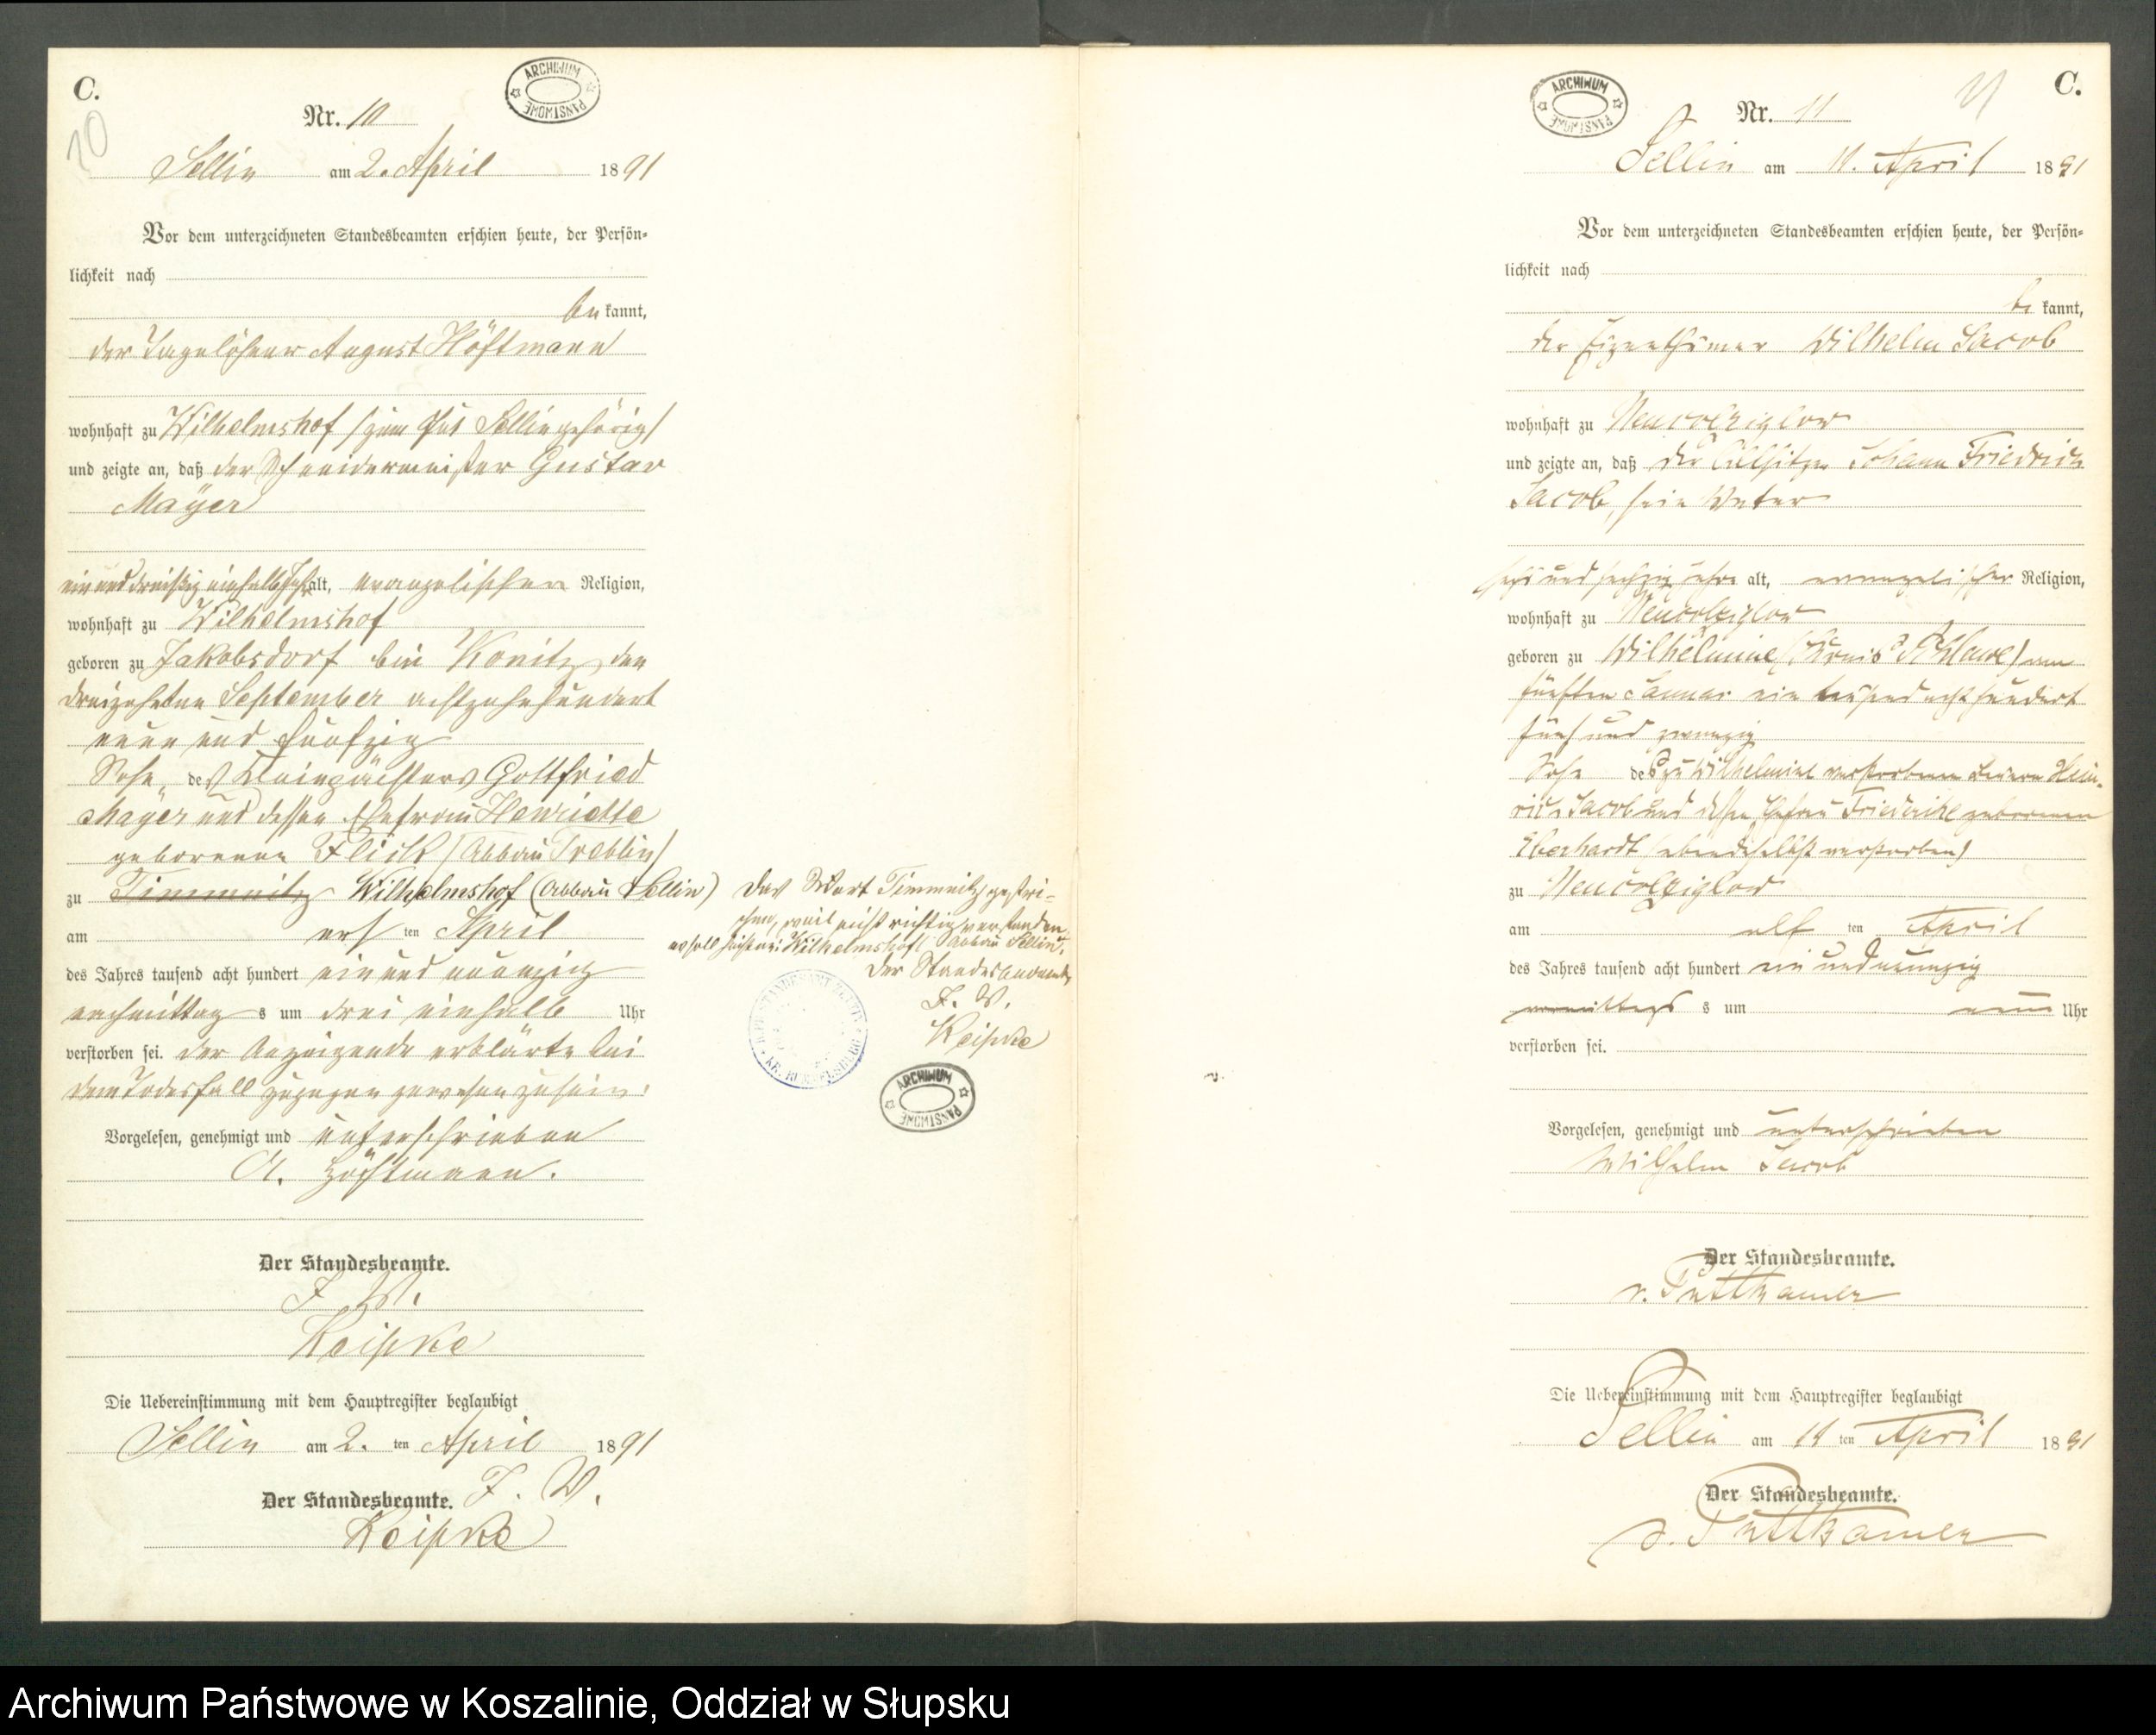 C.
10
ARCHIWUM PAŃSTWOWE
Nr. 10
Sellin am 2. April 1891
Vor dem unterzeichneten Standesbeamten erschien heute, der Persön-
lichkeit nach
be kannt,
der Tagelöhner August Höftmann
wohnhaft zu Wilhelmshof (zum Gut Sellin gehörig)
und zeigte an, daß der Schneidermeister Gustav
Mayer
ein und dreißig einhalb Jahr alt, evangelischer Religion,
wohnhaft zu Wilhelmshof
geboren zu Jakobsdorf bei Konitz den
dreizehnten September achtzehnhundert
neun und fünfzig
Sohn des Kleinpächters Gottfried
Mayer und dessen Ehefrau Henriette
geborenen Flick (Abbau Treblin)
zu Timmnitz Wilhelmshof (Abbau Sellin)
am ersten April
des Jahres tausend acht hundert ein und neunzig
nachmittag s um drei einhalb Uhr
verstorben sei. Der Anzeigende erklärte bei
dem Todesfall zugegen gewesen zu sein.
Vorgelesen, genehmigt und unterschrieben
A. Höftmann.
Der Standesbeamte.
J. V.
Reipke
Die Uebereinstimmung mit dem Hauptregister beglaubigt
Sellin am 2. ten April 1891
Der Standesbeamte. J. V.
Reipke
Das Wort Timmnitz gestri-
chen, weil nicht richtig verstanden,
es soll heißen: Wilhelmshof Abbau Sellin.
Der Standesbeamte
J. V.
Reipke
ARCHIWUM PAŃSTWOWE
ARCHIWUM PAŃSTWOWE
Nr. 11
11
C.
Sellin am 11. April 1891
Vor dem unterzeichneten Standesbeamten erschien heute, der Persön-
lichkeit nach
be kannt,
der Eigenthümer Wilhelm Jacob
wohnhaft zu Neucolziglow
und zeigte an, daß der Altsitzer Johann Friedrich
Jacob, sein Vater
sechs und sechzig Jahre alt, evangelischer Religion,
wohnhaft zu Neucolziglow
geboren zu Wilhelmine (Kreis Schlawe) am
fünften Januar ein tausend acht hundert
fünf und zwanzig
Sohn des zu Wilhelmine verstorbenen Bauern Hein-
rich Jacob und dessen Ehefrau Friederike geborenen
Eberhardt (ebendaselbst verstorben)
zu Neucolziglow
am elf ten April
des Jahres tausend acht hundert ein und neunzig
vormittags s um neun Uhr
verstorben sei.
Vorgelesen, genehmigt und unterschrieben
Wilhelm Jacob
Der Standesbeamte.
v. Puttkamer
Die Uebereinstimmung mit dem Hauptregister beglaubigt
Sellin am 11 ten April 1891
Der Standesbeamte.
v. Puttkamer
Archiwum Państwowe w Koszalinie, Oddział w Słupsku